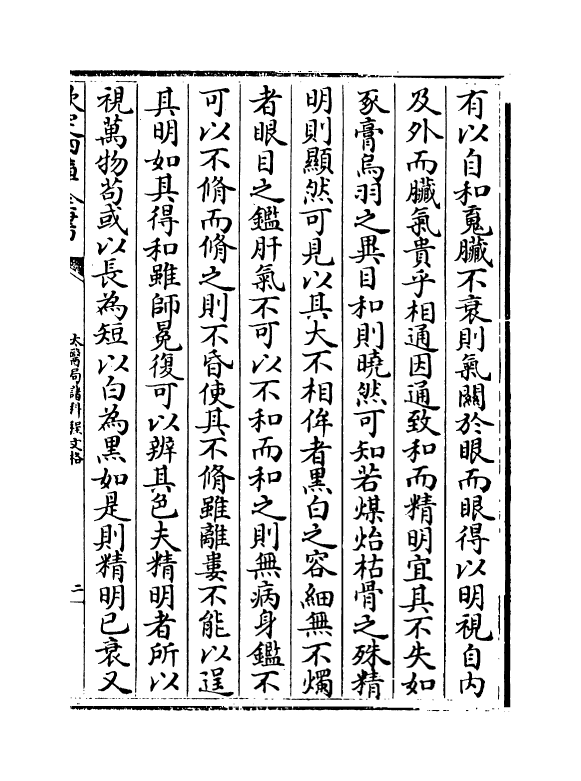 有以自和䰟臟不衰則氣關於眼而眼得以明視自内
及外而臟氣貴乎相通因通致和而精明宜其不失如
豕膏烏羽之異目和則曉然可知若煤炲枯骨之殊精
明則顯然可見以其大不相侔者黑白之容細無不燭
者眼目之鑑肝氣不可以不和而和之則無病身鑑不
可以不脩而脩之則不昏使其不脩雖離婁不能以逞
其明如其得和雖師冕復可以辨其色夫精明者所以
視萬物苟或以長為短以白為黑如是則精明已衰又
欽定四庫全書
太醫局諸科程文格
二